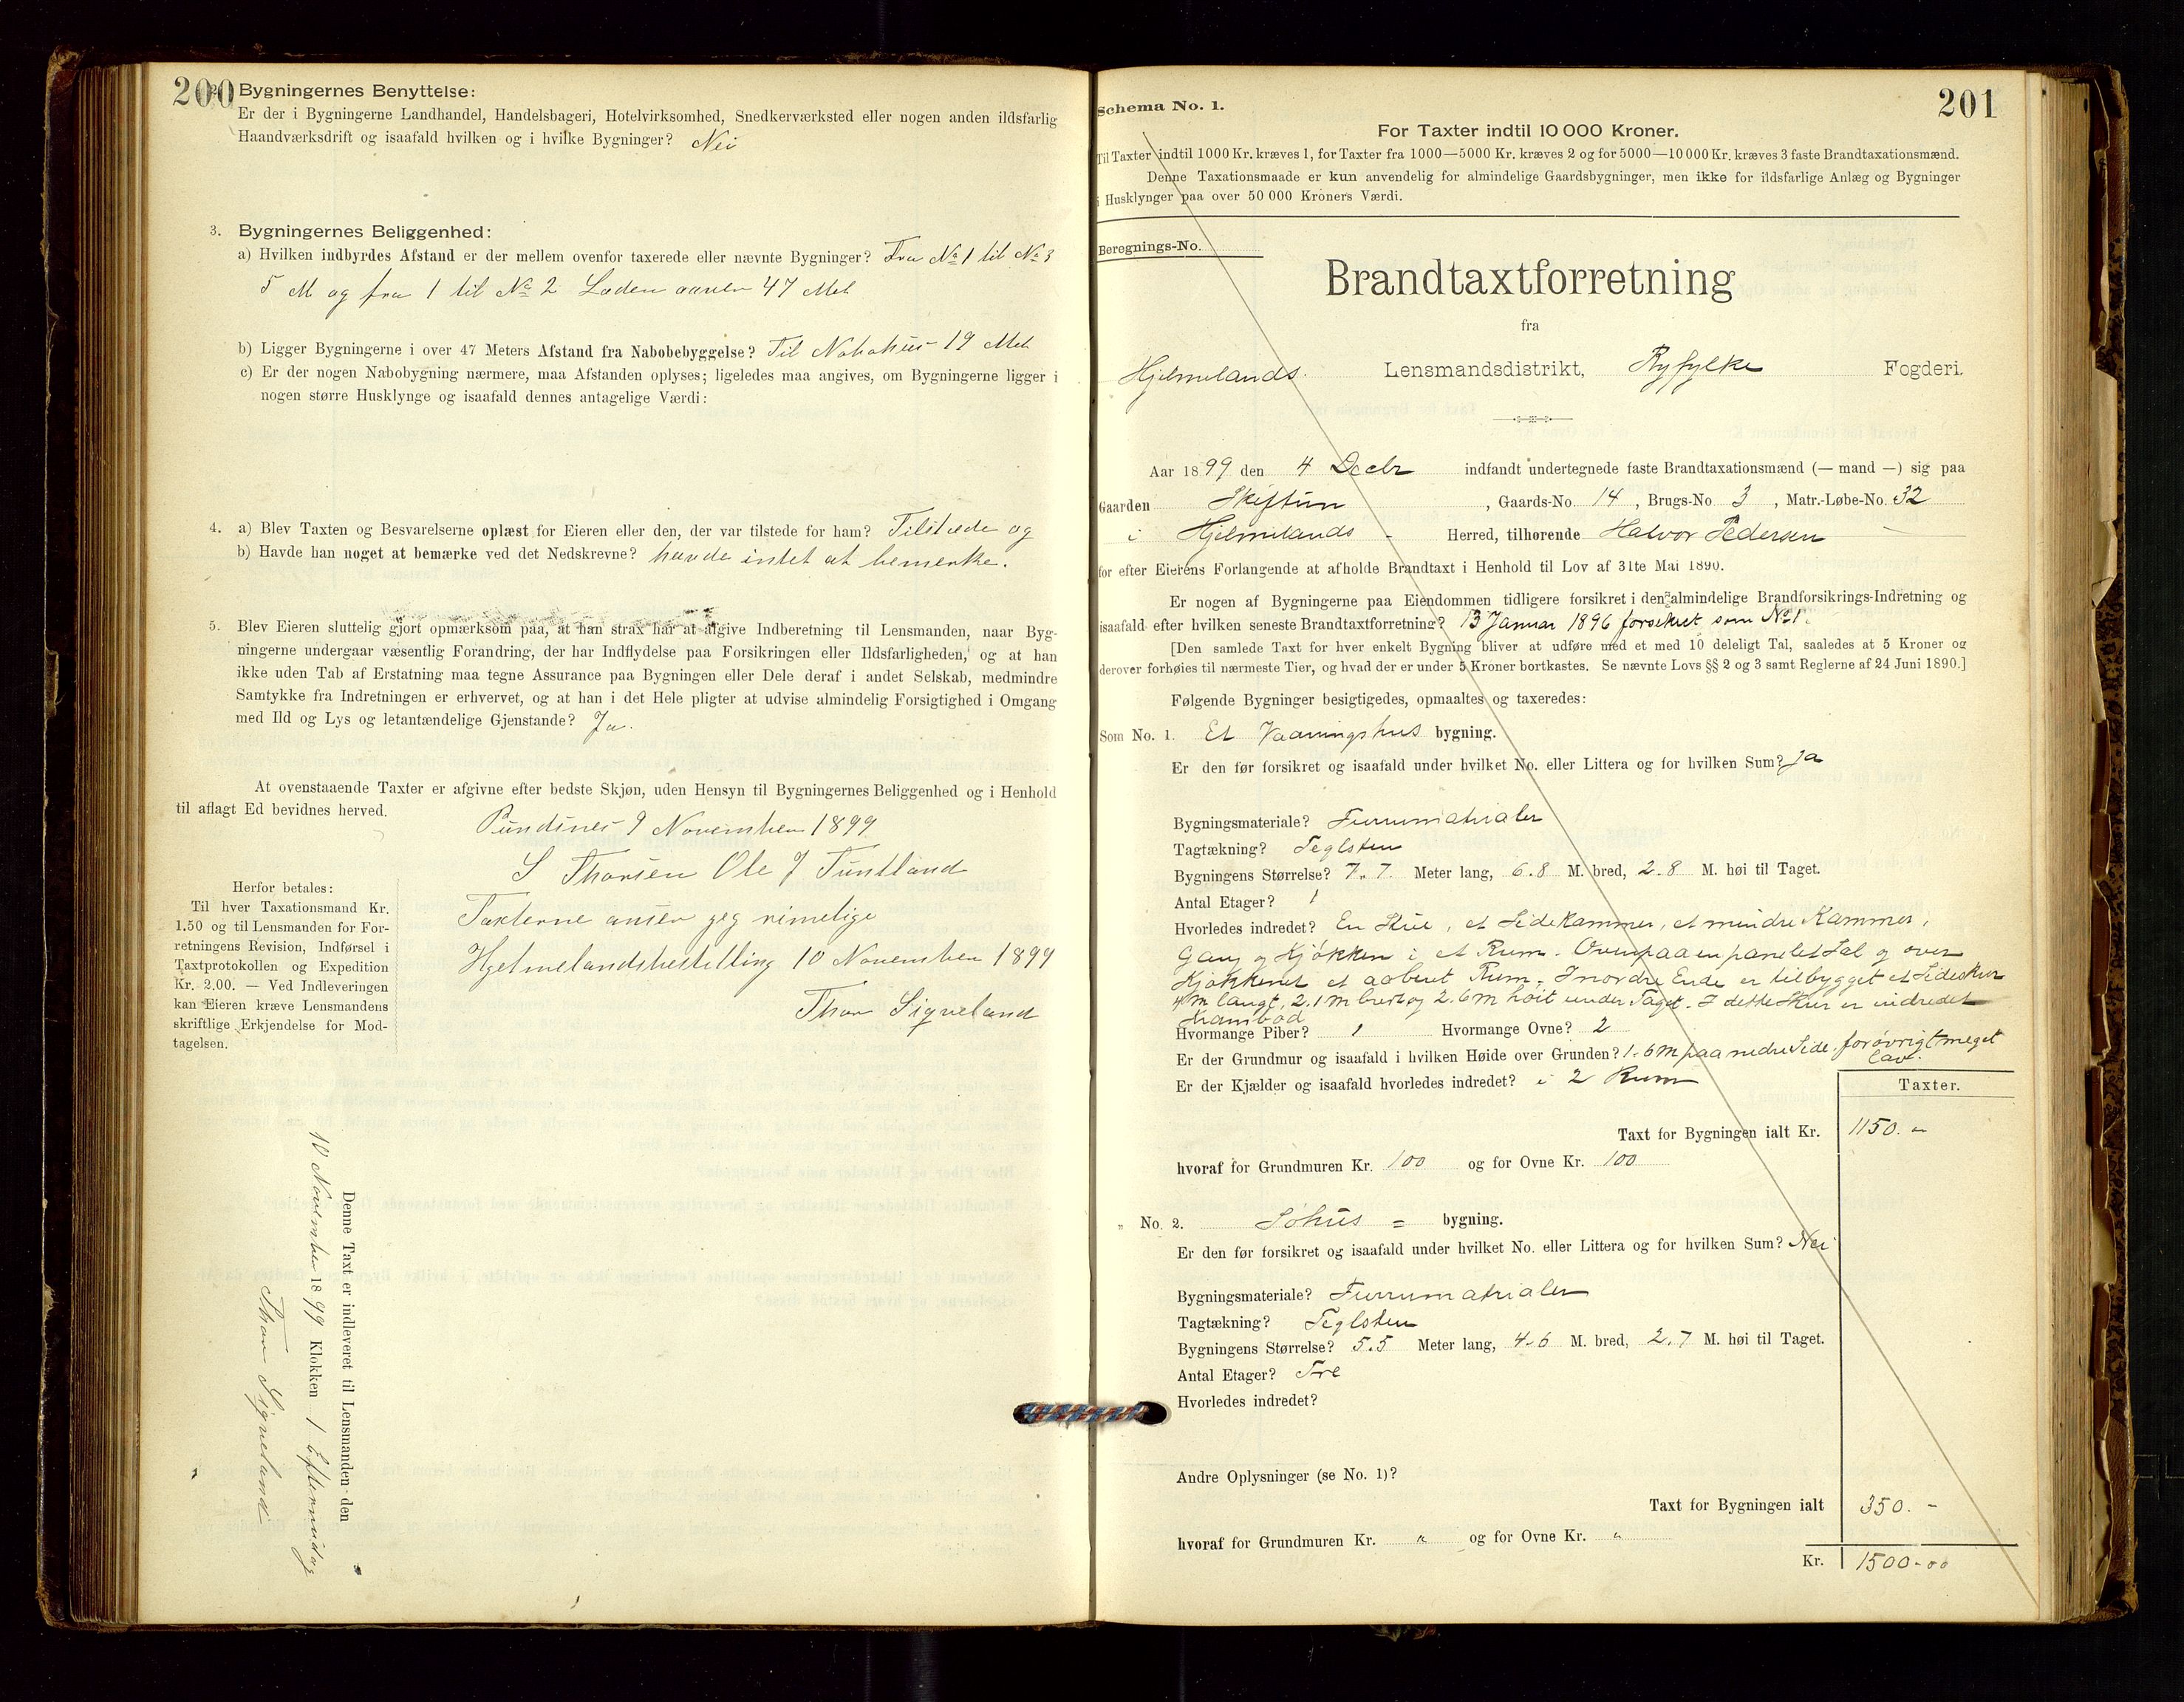 200
Bygningernes Benyttelse:
Er der i Bygningerne Landhandel, Handelsbageri, Hotelvirksomhed, Snedkerværksted eller nogen anden ildsfarlig
Haandværksdrift og isaafald hvilken og i hvilke Bygninger? Nei
3. Bygningernes Beliggenhed:
a) Hvilken indbyrdes Afstand er der mellem ovenfor taxerede eller nævnte Bygninger? Fra No 1 til No 3
5 M og fra 1 til No 2 Laden 47 Met
b) Ligger Bygningerne i over 47 Meters Afstand fra Nabobebyggelse? Til Nabohus 19 Met
c) Er der nogen Nabobygning nærmere, maa Afstanden oplyses; ligeledes maa angives, om Bygningerne ligger i
nogen større Husklynge og isaafald dennes antagelige Værdi:
4. a) Blev Taxten og Besvarelserne oplæst for Eieren eller den, der var tilstede for ham? Tilstæde og
b) Havde han noget at bemærke ved det Nedskrevne? havde intet at bemerke.
5. Blev Eieren sluttelig gjort opmærksom paa, at han strax har at afgive Indberetning til Lensmanden, naar Byg-
ningerne undergaar væsentlig Forandring, der har Indflydelse paa Forsikringen eller Ildsfarligheden, og at han
ikke uden Tab af Erstatning maa tegne Assurance paa Bygningen eller Dele deraf i andet Selskab, medmindre
Samtykke fra Indretningen er erhvervet, og at han i det Hele pligter at udvise almindelig Forsigtighed i Omgang
med Ild og Lys og letantændelige Gjenstande? Ja.
At ovenstaaende Taxter er afgivne efter bedste Skjøn, uden Hensyn til Bygningernes Beliggenhed og i Henhold
til aflagt Ed bevidnes herved.
Pundsnes 9 November 1899
S Thorsen Ole J Tuntland
Taxterne anser jeg rimelige
Hjelmelandsbestilling 10 November 1899
Thor Sigveland
Herfor betales:
Til hver Taxationsmand Kr.
1.50 og til Lensmanden for For-
retningens Revision, Indførsel i
Taxtprotokollen og Expedition
Kr. 2.00. — Ved Indleveringen
kan Eieren kræve Lensmandens
skriftlige Erkjendelse for Mod-
tagelsen.
Denne Taxt er indleveret til Lensmanden den
10 November 1899 Klokken 1 Eftermidag
Thor Sigveland
201
Schema No. 1.
For Taxter indtil 10 000 Kroner.
Til Taxter indtil 1000 Kr. kræves 1, for Taxter fra 1000—5000 Kr. kræves 2 og for 5000—10 000 Kr. kræves 3 faste Brandtaxationsmænd.
Denne Taxationsmaade er kun anvendelig for almindelige Gaardsbygninger, men ikke for ildsfarlige Anlæg og Bygninger
i Husklynger paa over 50 000 Kroners Værdi.
Beregnings-No.
Brandtaxtforretning
fra
Hjelmelands Lensmandsdistrikt, Ryfylke Fogderi.
Aar 1899 den 4 Decbr indfandt undertegnede faste Brandtaxationsmænd (— mand —) sig paa
Gaarden Skiftun, Gaards-No. 14, Brugs-No 3, Matr.-Løbe-No. 32
i Hjelmelands Herred, tilhørende Halvor Pedersen
for efter Eierens Forlangende at afholde Brandtaxt i Henhold til Lov af 31te Mai 1890.
Er nogen af Bygningerne paa Eiendommen tidligere forsikret i den almindelige Brandforsikrings-Indretning og
isaafald efter hvilken seneste Brandtaxtforretning? 13 Januar 1896 forsikret som No 1.
[Den samlede Taxt for hver enkelt Bygning bliver at udføre med et med 10 deleligt Tal, saaledes at 5 Kroner og
derover forhøies til nærmeste Tier, og hvad der er under 5 Kroner bortkastes. Se nævnte Lovs §§ 2 og 3 samt Reglerne af 24 Juni 1890.]
Følgende Bygninger besigtigedes, opmaaltes og taxeredes:
Som No. 1. Et Vaaningshus bygning.
Er den før forsikret og isaafald under hvilket No. eller Littera og for hvilken Sum? Ja
Bygningsmateriale? Furumatrialer
Tagtækning? Teglsten
Bygningens Størrelse? 7.7 Meter lang, 6.8 M. bred, 2.8 M. høi til Taget.
Antal Etager? 1
Hvorledes indredet? En Stue, et Sidekammer, et mindre Kammer,
Gang og Kjøkken i et Rum. Ovenpaa en panelet Sal og over
Kjøkkenet et aabent Rum. I nordre Ende er tilbygget et Sideskur
4 m langt, 2.1 m bredt og 2.6 m høit under Taget. I dette Skur er indredet
Hvormange Piber? 1 Hvormange Ovne? 2
Er der Grundmur og isaafald i hvilken Høide over Grunden? 1.6 m paa nedre Side, forøvrigt meget
lav.
Er der Kjælder og isaafald hvorledes indredet? i 2 Rum
Taxter.
Taxt for Bygningen ialt Kr. 1150. -
hvoraf for Grundmuren Kr. 100 og for Ovne Kr. 100
" No. 2. Søhus = bygning.
Er den før forsikret og isaafald under hvilket No. eller Littera og for hvilken Sum? Nei
Bygningsmateriale? Furumatrialer
Tagtækning? Teglsten
Bygningens Størrelse? 5.5 Meter lang, 4.6 M. bred, 2.7 M. høi til Taget.
Antal Etager? Tre
Hvorledes indredet?
Andre Oplysninger (se No. 1)?
Taxt for Bygningen ialt 350. -
hvoraf for Grundmuren Kr. " og for Ovne Kr. "
Kr. 1500-00